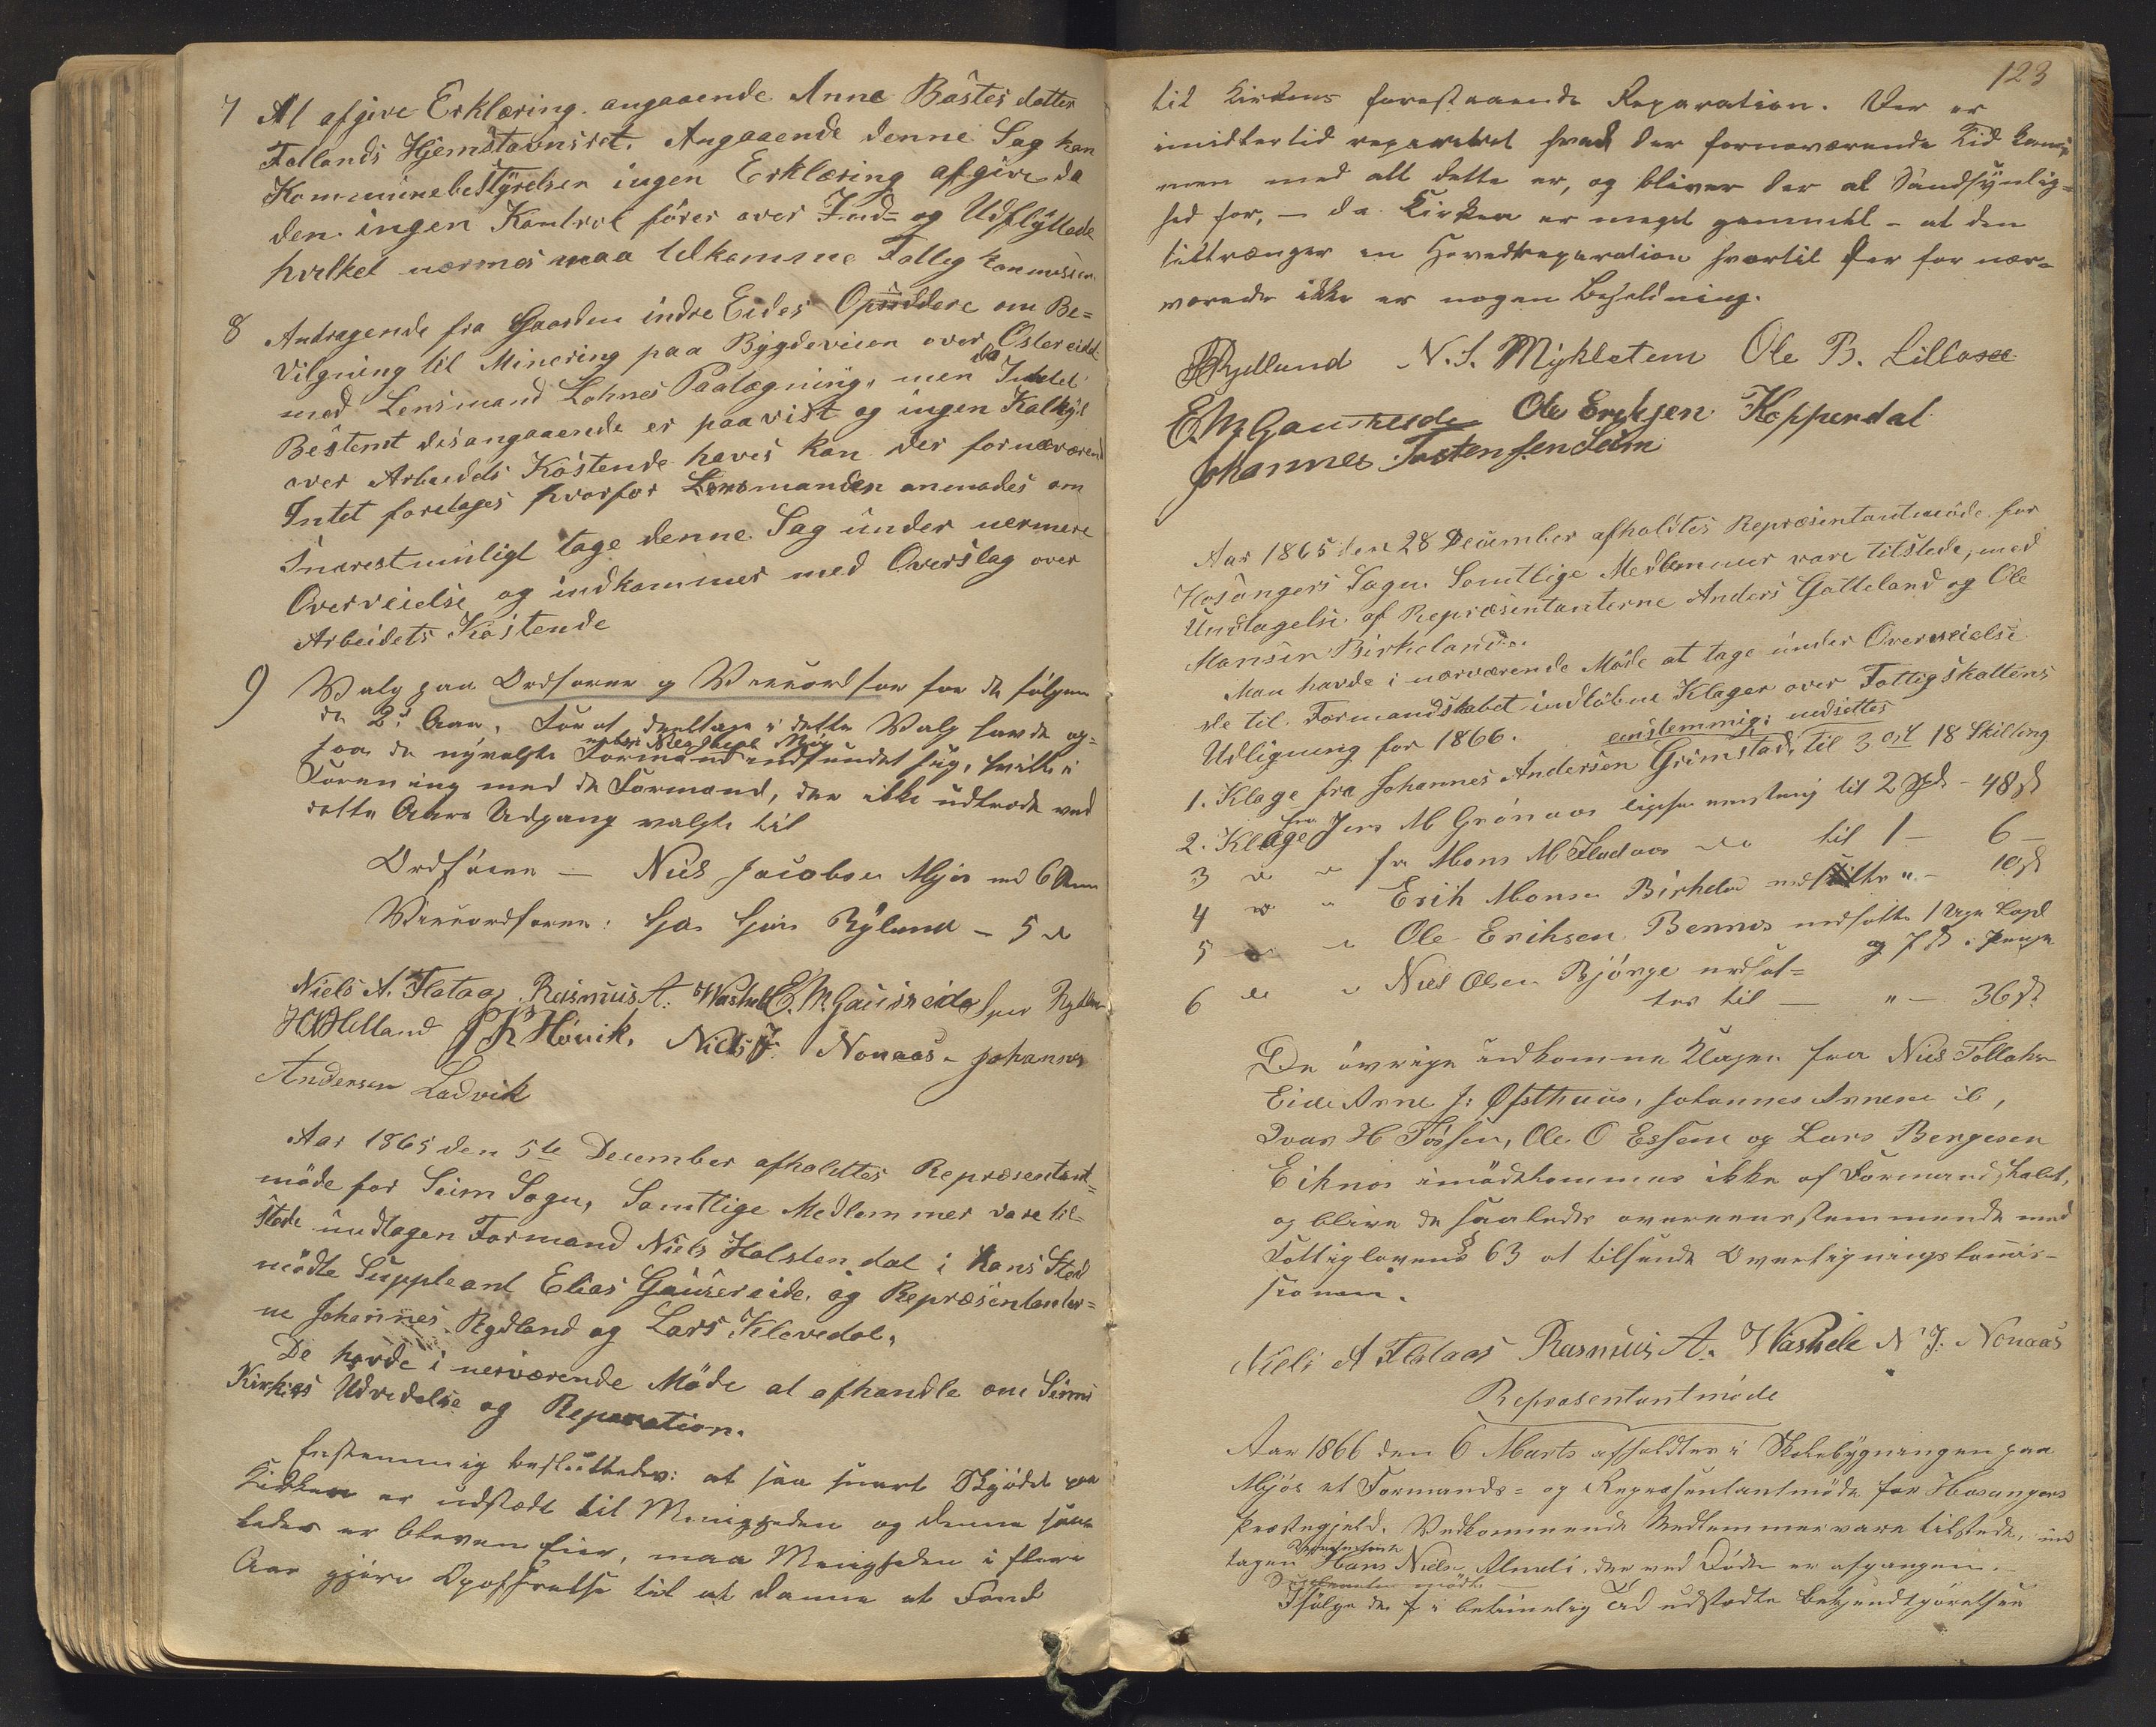 7 At afgive Erklæring angaaende Anna Bastesdatter
Follands Hjemstavnsret. Angaaende denne Sag kan
Kommunebestyrelsen ingen Erklæring afgive da
den ingen Kontrol fører over Ind- og Udflyttede
hvilket nærmes maa tilkomme Fattigkommission
8 Andragende fra Gaarden indre Eides Opsiddere om Be=
vilgning til Minering paa Bygdeveien over Ostereidet
med Lensmand Lohnes Paategning, men da Intet
Bestemt desangaaende er paavist og ingen Kalkyl
over Arbeidets Kostende haves kan der fornærværend
Intet foretages hvorfor Lensmanden anmodes om
Snarestmuligt tage denne Sag under nermere
Overveielse og indkommer med Overslag over
Arbeidets Kostende
9) Valg paa Ordfører og Viceordfører for de følgen
de 2de Aar. For at deeltage i dette Valg havde og=
saa de nyvalgte Formænd indfundet sig, hvilke i
Forening med de Formænd, der ikke udtræde ved
dette Aars Udgang valgte til
Ordfører — Niels Jacobsen Mjøs med 6 Stem
Viceordfører: Hans Rydland - 5 do
Niels A. Flataas Rasmus A. Washele E. M. Gausereide Rydland
H Helland Høvik, Niels J. Nonaas. Johannes
Andersen Ladvik
Aar 1865 den 5te December afholdtes Repræsentant=
møde for Seim Sogn, Samtlige Medlemmer vare til=
stede undtagen Formand Niels Holstendal i hans Sted
mødte Suppleant Elias Gausereide, og Repræsentanter=
ne Johannes Rydland og Lars Klevedal.
De havde i nerværende Møde at afhandle om Seims
Kirkes Udvidelse og Reparation.
Enstemmig besluttedes: at saa snart Skjødet paa
Kirken er udstedt til Menigheden og denne saa
ledes er bleven Eier, maa Menigheden i flere
Aar gjøre Opofrelse til at danne et Fond
123
til Kirkens forestaaende Reparation. Der er
imidlertid repareret hvad der fornærværende Tid kan,
men med alt dette er, og bliver der al Sandsynlig=
hed for, — da Kirken er meget gammel - at den
tiltrænger en Hovedreparation hvortil der for nær=
værende ikke er nogen Beholdning.
Rydland N. S. Mykletem Ole B. Lillaase
E. M. Gausereide Ole Eriksen Koppendal
Johannes Tostensen Seim
Aar 1865 den 28 December afholdtes Repræsentantmøde for
Hosangers Sogn. Samtlige Medlemmer vare tilstede, med
Undtagelse af Repræsentanterne Anders Gatteland og Ole
Monsen Birkeland.
Man havde i nærværende Møde at tage under Overveielse
de til Formandskabet indløbne Klager over Fattigskattens
Udligning for 1866.
1. Klage fra Johannes Andersen Grimstad, eenstemmig nedsættes til 3 ort 18 Skilling
2. Klage fra Jens M Grønaas ligesaa eenstemmig til 2 Spd - 48 ß
3 do " fra Mons M Fladaas do til 1 — 6 —
4 do " Erik Monsen Birkeland nedsættes " — 10 ß
5 do " Ole Eriksen Bernes nedsættes 1
og 7 ß i Penge
6 do " Niels Olsen Bjørge nedsæt=
tes til — " — 36 ß.
De øvrige indkomne Klager fra Niels Tollaksen
Eide Arne J: Ofsthuus, Johannes Arnesen ib,
Ivar H Tøssen, Ole O Essem og Lars Bergesen
Eiknæs imødekommes ikke af Formandskabet,
og blive de saaledes overeenstemmende med
Fattiglovens § 63 at tilsende Overligningskommis-
sionen.
Niels A Flataas Rasmus A. Washele N J. Nonaas
Repræsentantmøde
Aar 1866 den 6 Marts afholdtes i Skolebygningen paa
Mjøs et Formands= og Repræsentantmøde for Hosangers
Præstegjeld. Vedkommende Medlemmer vare tilstede, und
tagen Repræsentant Hans Nielsen Almeli, der ved Døden er afgangen.
Suppleanten mødte
Ifølge de i betimelig Tid udstedte Bekjendtgjørelser